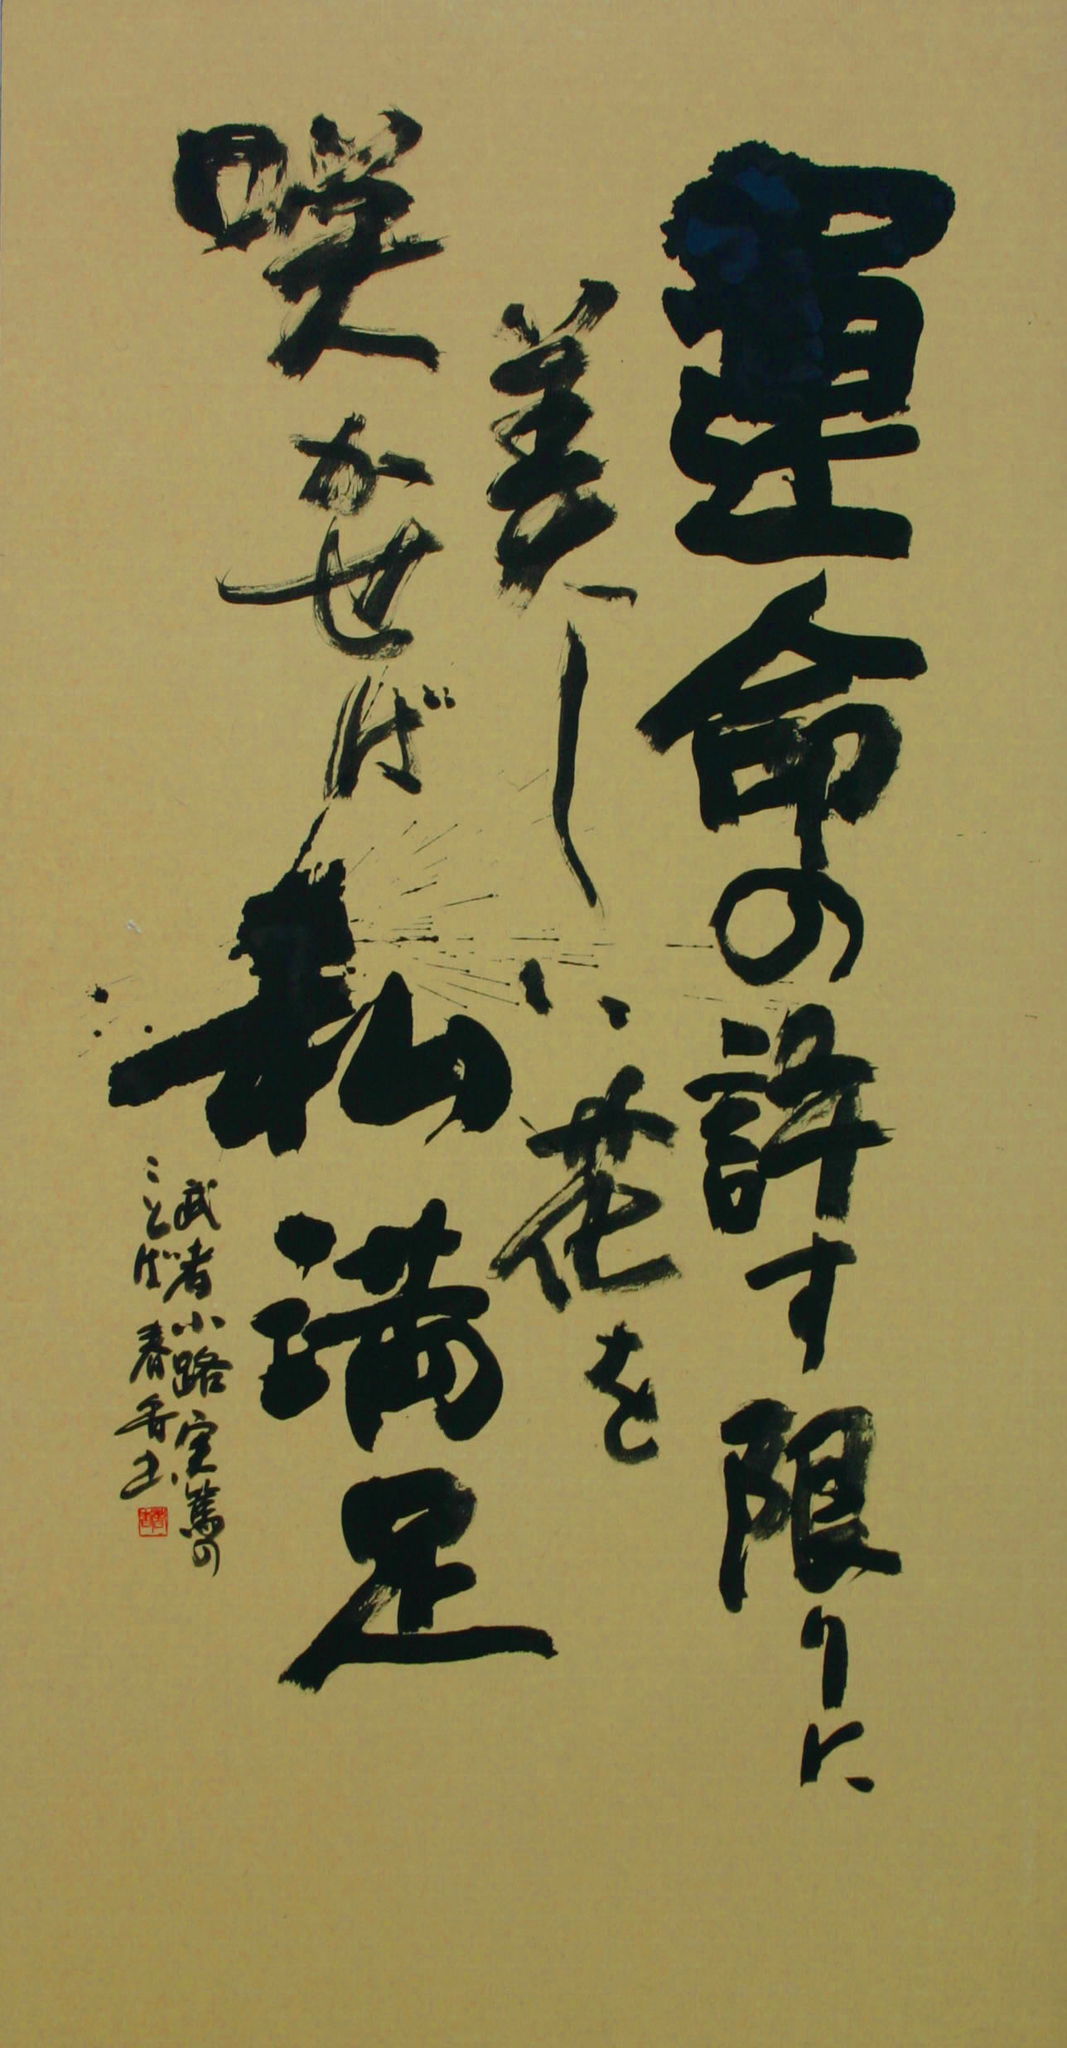 運命の許す限りに
美しい花を
咲かせば私満足
武者小路実篤の
ことば 春香書